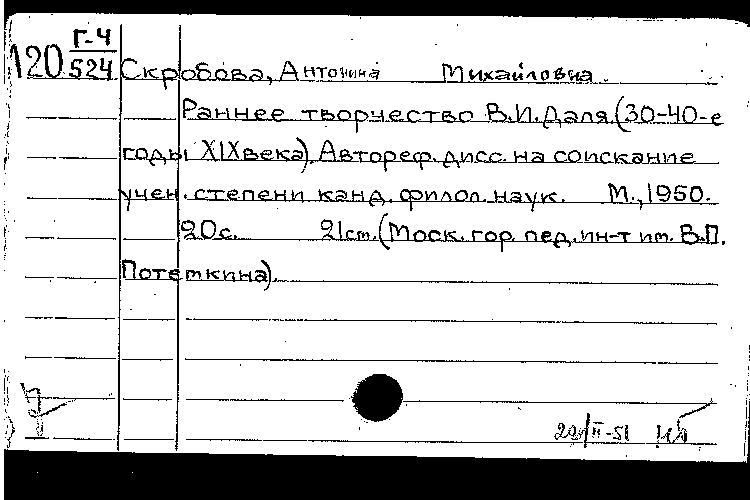 Г-4
120 524 Скробова, Антонина Михайловна.
Раннее творчество В.И.Даля.(30-40-е
годы XIXвека). Автореф.дисс.на соискание
учен.степени канд.филол.наук. М.,1950.
20с. 21см.(Моск.гор.пед.ин-т им.В.П.
Потемкина).
22/II-51